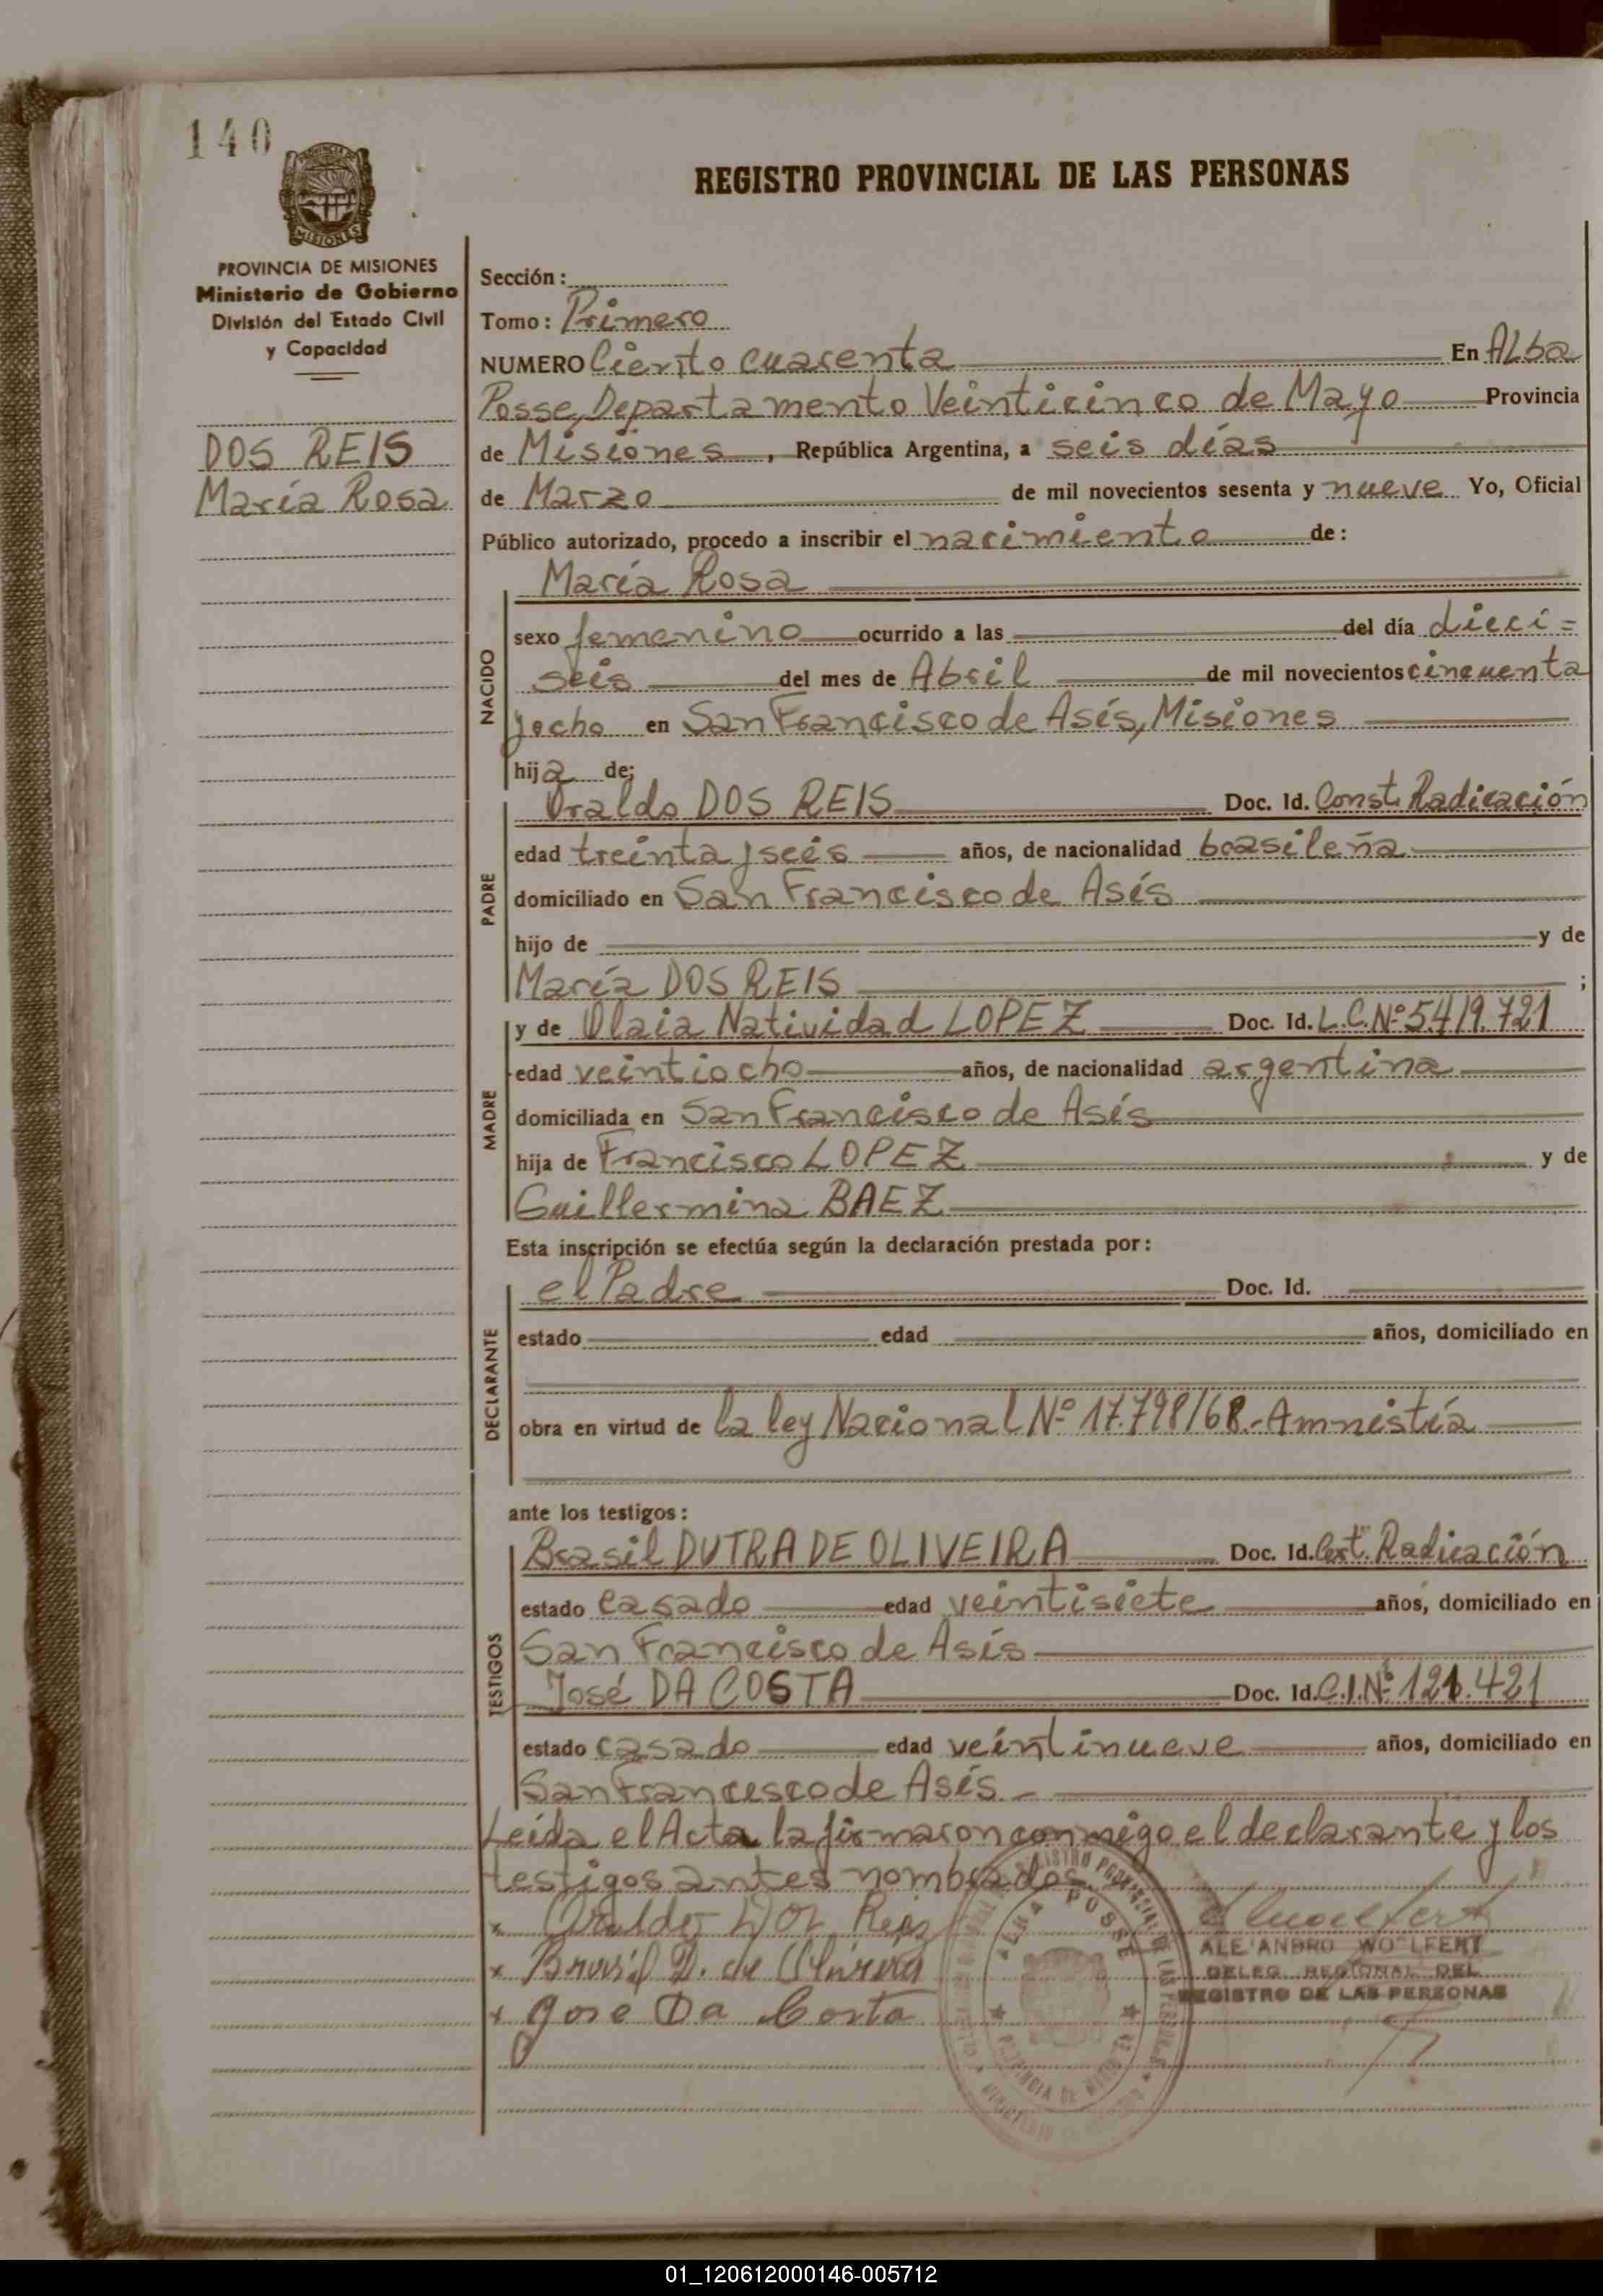 140
PROVINCIA DE MISIONES
Ministerio de Gobierno
División del Estado Civil
y Capacidad
DOS REIS
María Rosa
REGISTRO PROVINCIAL DE LAS PERSONAS
Sección:
Tomo: Primero
NUMERO Ciento cuarenta En ALba
Posse, Departamento Veinticinco de Mayo Provincia
de Misiones, República Argentina, a seis días
de Marzo de mil novecientos sesenta y nueve Yo, Oficial
Público autorizado, procedo a inscribir el nacimiento de:
María Rosa
NACIDO
sexo femenino ocurrido a las del día dieci=
seis del mes de Abril de mil novecientos cincuenta
y ocho en San Francisco de Asís, Misiones
hija de;
PADRE
Oraldo DOS REIS Doc. Id. Const. Radicación
edad treinta y seis años, de nacionalidad brasileña
domiciliado en San Francisco de Asís
hijo de y de
María DOS REIS ;
MADRE
y de Olaia Natividad LOPEZ Doc. Id. L.C.Nº 5.419.721
edad veintiocho años, de nacionalidad argentina
domiciliada en San Francisco de Asís
hija de Francisco LOPEZ y de
Guillermina BAEZ
Esta inscripción se efectúa según la declaración prestada por:
DECLARANTE
el Padre Doc. Id.
estado edad años, domiciliado en
obra en virtud de la ley Nacional Nº 17.798/68.- Amnistía
ante los testigos:
TESTIGOS
Brasil DUTRA DE OLIVEIRA Doc. Id. Cert. Radicación
estado casado edad veintisiete años, domiciliado en
San Francisco de Asís
José DA COSTA Doc. Id. C.I.Nº 121.421
estado casado edad veintinueve años, domiciliado en
San Francisco de Asís.-
Leída el Acta la firmaron conmigo el declarante y los
testigos antes nombrados.
x Oraldo Dos Reis
x Brasil D. de Oliveira
x Jose Da Costa
ALBA POSSE
ALEJANDRO WOLFERT
DELEG. REGIONAL DEL
REGISTRO DE LAS PERSONAS
01_120612000146-005712